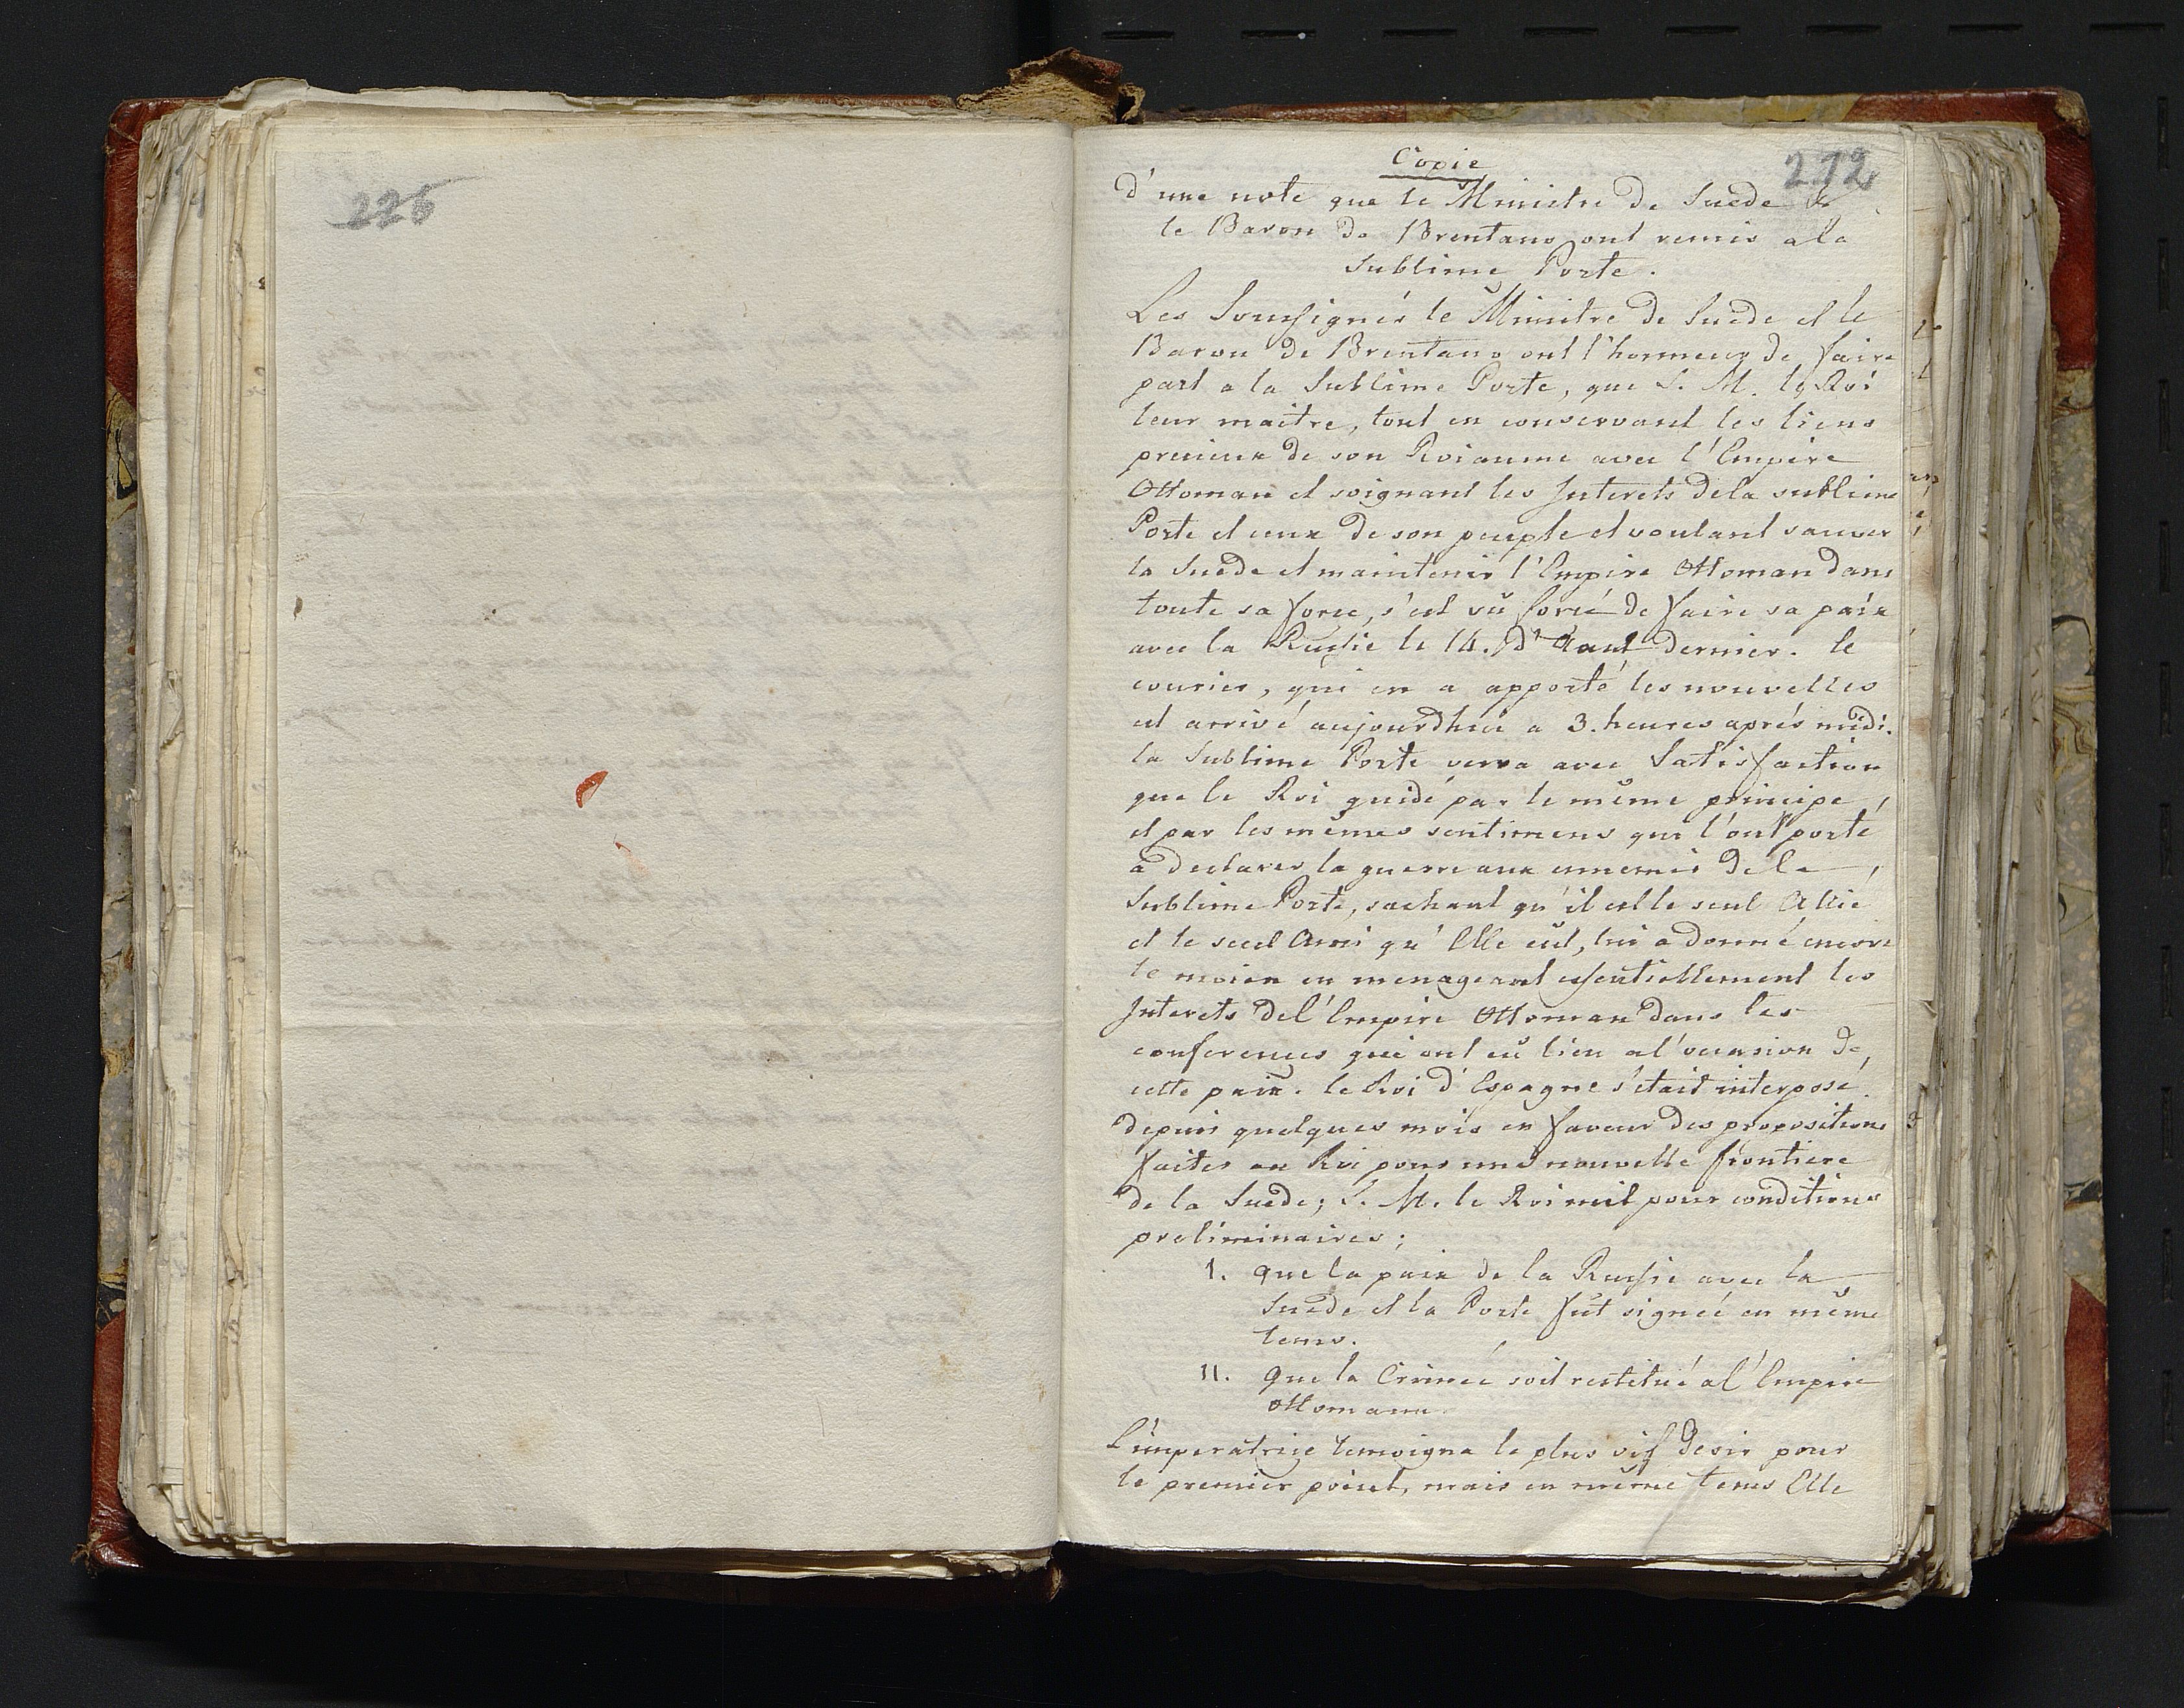 226
272
Copie
d'une note que le Ministre de Suede &
le Baron de Brentano ont remis a la
Sublime Porte.
Les Soussignés le Ministre de Suede et le
Baron de Brentano ont l'honneur de faire
part a la Sublime Porte, que S. M. le Roi
leur maitre, tout en conservant les liens
precieux de son Roiaume avec l'Empire
Ottoman et soignant les Interets dela sublime
Porte et ceux de son peuple et voulant sauver
la Suede et maintenir l'Empire Ottoman dans
toute sa force, s'est vû forcé de faire sa paix
avec la Russie le 14. d'Aout dernier. le
courier, qui en a apporté les nouvelles
est arrivé aujourdhui a 3. heures aprés midi.
la Sublime Porte verra avec Satisfaction
que le Roi guidé par le même principe,
et par les mêmes sentimens qui l'ont porté
a declarer la guerre aux ennemis de la
Sublime Porte, sachant qu'il est le seul Allié
et le seul Ami qu'Elle eut, lui a donné encore
le moien en menageant essentiellement les
Interets del'Empire Ottoman dans les
conferences qui ont eû lieu al'occasion de
cette paix. le Roi d'Espagne s'etait interposé
depuis quelques mois en faveur des propositions
faites au Roi pour une nouvelle frontiere
de la Suede; S. M. le Roi mit pour conditions
preliminaires;
1. que la paix de la Russie avec la
Suede et la Porte fut signée en même
tems.
11. que la Crimée soit restitué al'Empire
Ottomann.
L'imperatrice temoigna le plus vif desir pour
le premier point, mais en même tems Elle